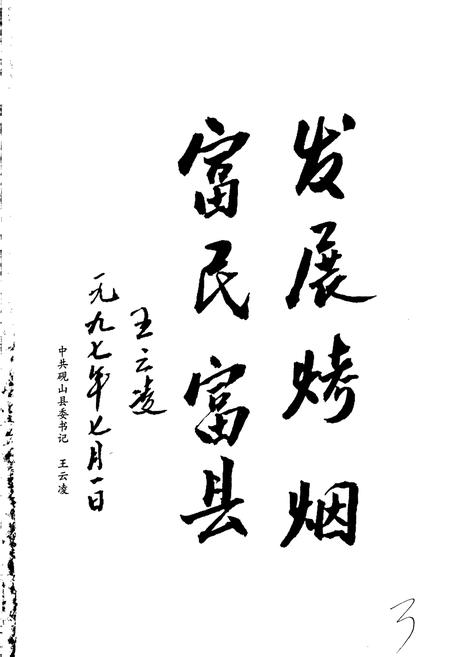 发展烤烟
富民富县
王云凌
一九九七年七月一日
中共砚山县委书记 王云凌
3